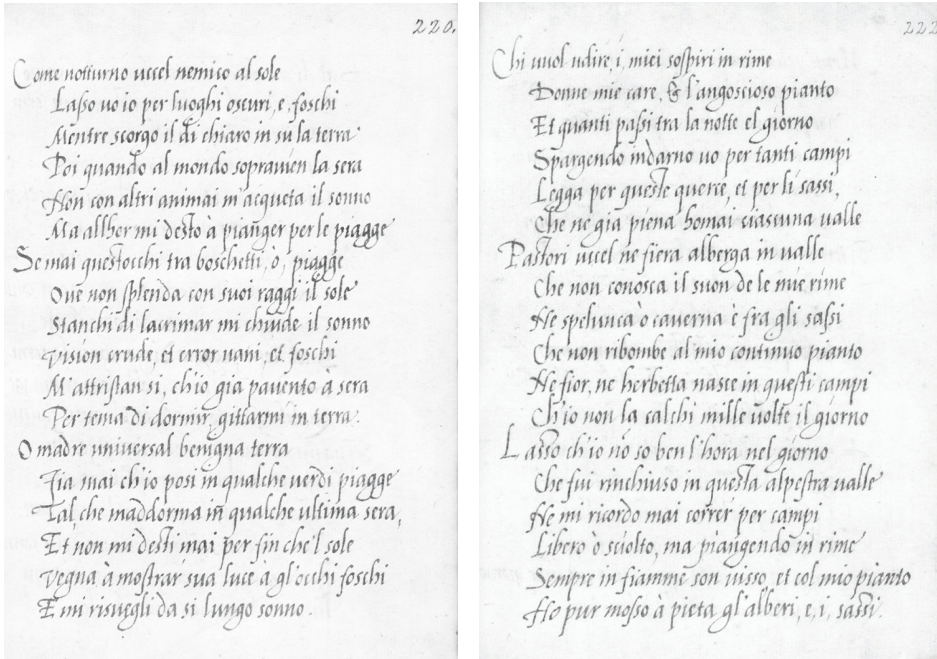 220.
Come notturno uccel nemico al sole
Lasso vo io per luoghi oscuri, e, foschi
Mentre scorgo il di chiaro in su la terra
Poi quando al mondo sopravien la sera
Non con altri animai m'acqueta il sonno
Ma allhor mi desto à pianger per le piagge
Se mai quest'occhi tra boschetti, ò, piagge
Oue non splenda con suoi raggi il sole
Stanchi di lacrimar mi chiude il sonno
Vision crude, et error uani, et foschi
M'attristan si, ch'io gia pauento à sera
Per tema di dormir, gittarmi in terra.
O madre universal benigna terra
Fia mai ch'io posi in qualche uerdi piagge
Tal che m'addorma in qualche ultima sera,
Et non mi desti mai per fin che'l sole
Vegna à mostrar sua luce à gl'occhi foschi
E mi risuegli da si lungo sonno.
222
Chi uuol udire i, miei sospiri in rime
Donne mie care, & l'angoscioso pianto
Et quanti passi tra la notte el giorno
Spargendo indarno uo per tanti campi
Legga per queste querce, et per li sassi,
Che ne gia piena homai ciascuna ualle
Pastori uccel ne fiera alberga in ualle
Che non conosca il suon de le mie rime
Ne spelunca ò caverna è fra gli sassi
Che non ribombe al mio continuo pianto
Ne fior, ne herbetta nasce in questi campi
Ch'io non la calchi mille uolte il giorno
Lasso ch'io nō so ben l'hora nel giorno
Che fui rinchiuso in questa alpestra ualle
Ne mi ricordo mai correr per campi
Libero ò sciolto, ma piangendo in rime
Sempre in fiamme son uisso, et col mio pianto
Ho pur mosso à pieta gl'alberi, e, i, sassi.